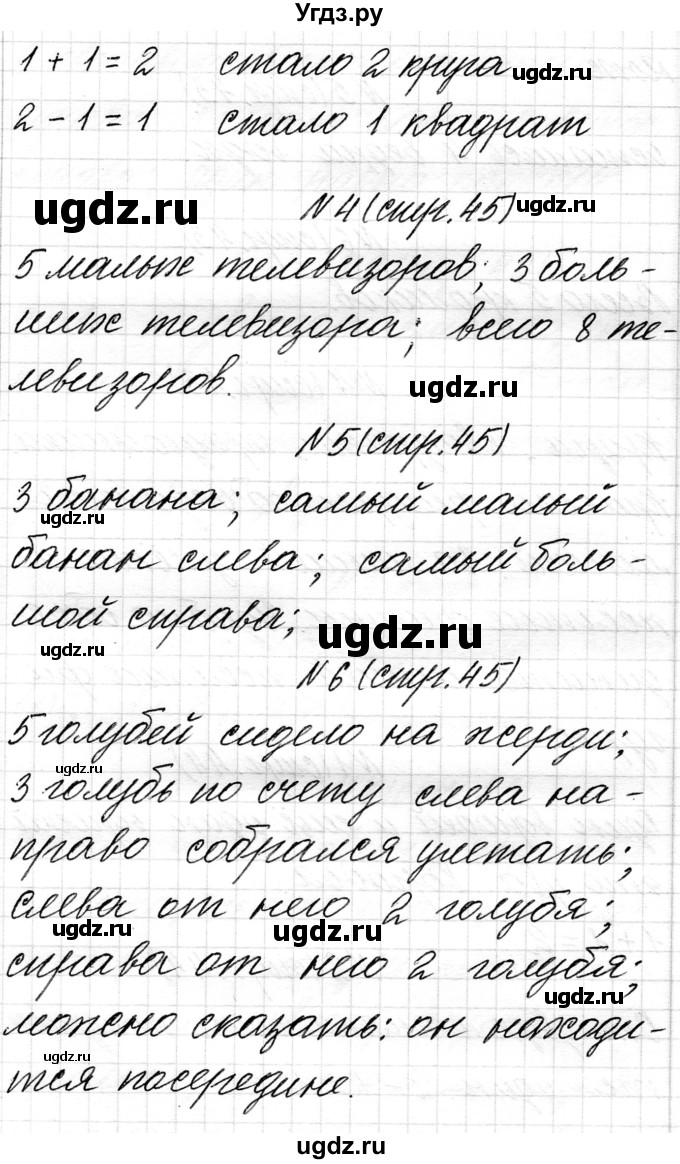 Угдз.ру
1 + 1 = 2 стало 2 круга ugdz.ru
2 - 1 = 1 стало 1 квадрат
ugdz.ru N 4 (стр. 45) ugdz.ru
5 малых телевизоров; 3 боль-
ших телевизора; всего 8 те-
левизоров. ugdz.ru
N 5 (стр. 45)
3 банана; самый малый
ugdz.ru
банан слева; самый боль-
шой справа; ugdz.ru
ugdz.ru
N 6 (стр. 45)
5 голубей сидело на жерди;
ugdz.ru
3 голубь по счету слева на-
право собрался улетать;
слева от него 2 голубя;
ugdz.ru ugdz.ru
справа от него 2 голубя;
ugdz.ru
можно сказать: он находи-
ugdz.ru
тся посередине.
ugdz.ru